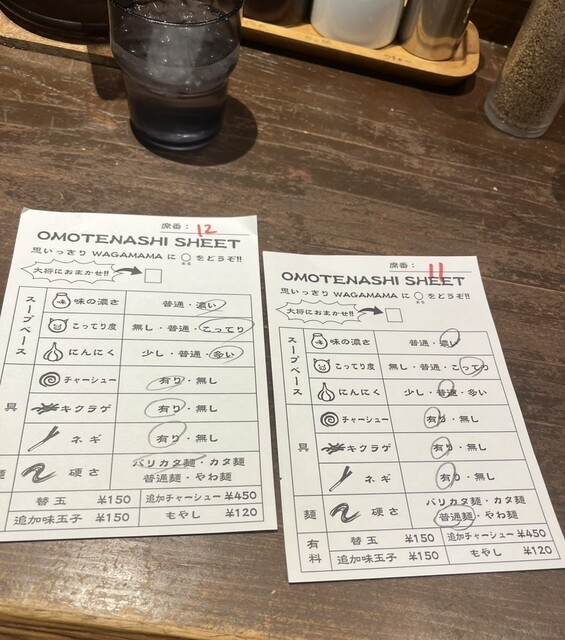 席番： 12
OMOTENASHI SHEET
思いっきり WAGAMAMA に ○ をどうぞ!!
大将におまかせ!!
スープベース
味の濃さ 普通・濃い
こってり度 無し・普通・こってり
にんにく 少し・普通・多い
具
チャーシュー 有り・無し
キクラゲ 有り・無し
ネギ 有り・無し
麺 硬さ バリカタ麺・カタ麺
普通麺・やわ麺
替玉 ¥150 追加チャーシュー ¥450
追加味玉子 ¥150 もやし ¥120
席番： 11
OMOTENASHI SHEET
思いっきり WAGAMAMA に ○ をどうぞ!!
大将におまかせ!!
スープベース
味の濃さ 普通・濃い
こってり度 無し・普通・こってり
にんにく 少し・普通・多い
具
チャーシュー 有り・無し
キクラゲ 有り・無し
ネギ 有り・無し
麺 硬さ バリカタ麺・カタ麺
普通麺・やわ麺
有料
替玉 ¥150 追加チャーシュー ¥450
追加味玉子 ¥150 もやし ¥120